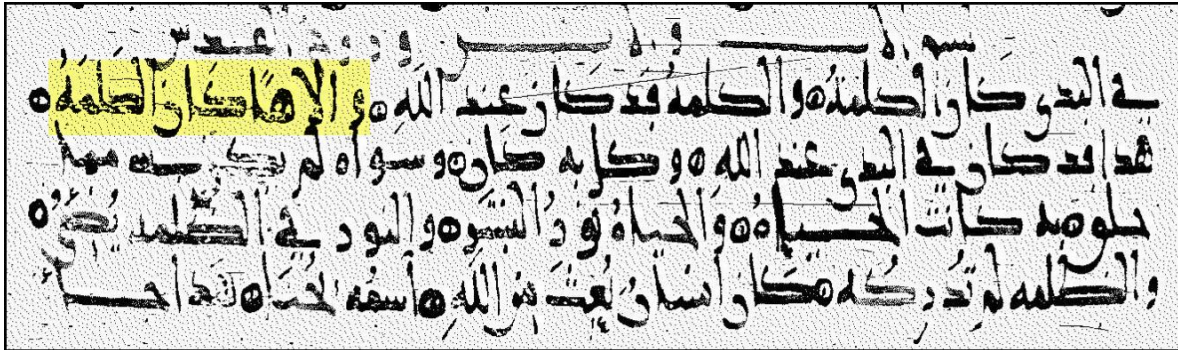 بسم الاب والابن وروح القدس
في البدي كان الكلمة والكلمة قد كان عند الله والاها كان الكلمة
هذا قد كان في البدي عند الله وكل به كان وسواه لم يكن شي مما
خلق به كانت الحياة والحياة نور البشر والنور في الظلمة يضي
والظلمة لم تدركه كان انسان بعث من الله اسمه يحنا هذا